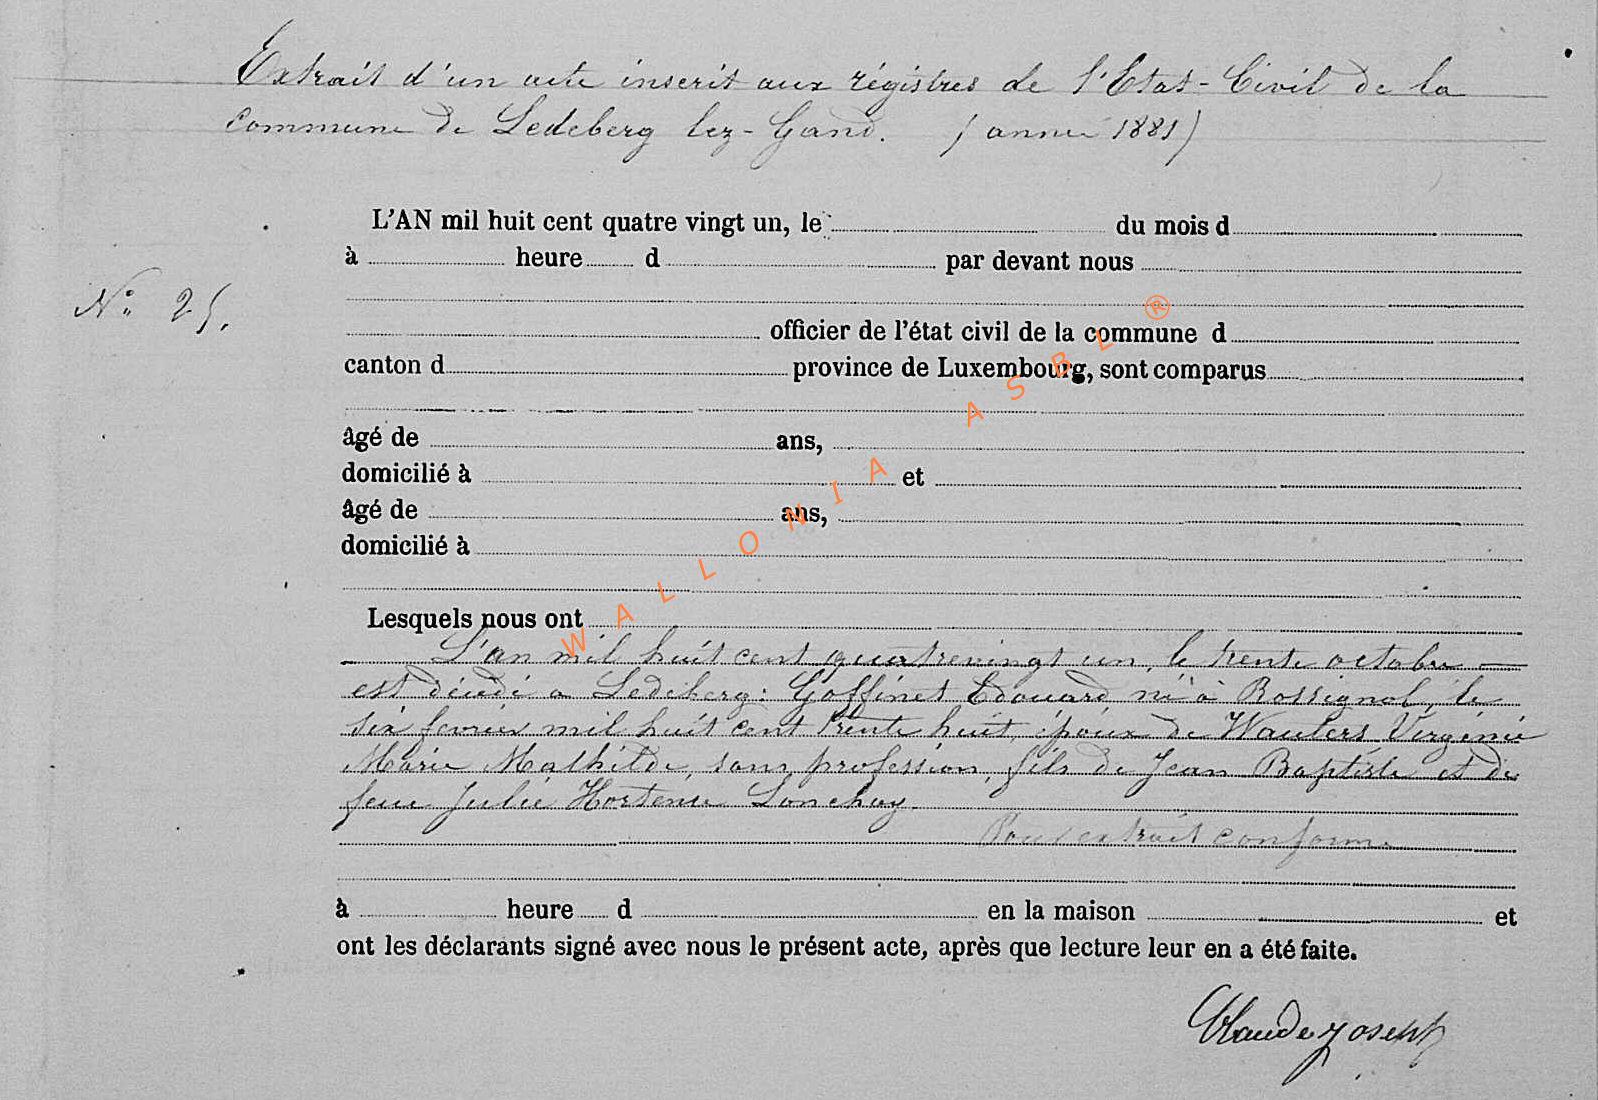 Extrait d'un acte inscrit aux régistres de l'Etat-Civil de la
Commune de Ledeberg lez-Gand. (année 1881)
L'AN mil huit cent quatre vingt un, le du mois d
à heure d par devant nous
N° 25.
officier de l'état civil de la commune d
canton d province de Luxembourg, sont comparus
âgé de ans,
domicilié à et
âgé de ans,
domicilié à
Lesquels nous ont
L'an mil huit cent quatrevingt un, le trente octobre —
est décédé a Ledeberg: Goffinet Edouard né à Rossignol, le
six fevrier mil huit cent trente huit, époux de Wauters Virginie
Marie Mathilde, sans profession, fils de Jean Baptiste et de
feue Julie Hortense Lonchay.
Pour extrait conforme
à heure d en la maison et
ont les déclarants signé avec nous le présent acte, après que lecture leur en a été faite.
Claude Joseph
WALLONIA ASBL ®